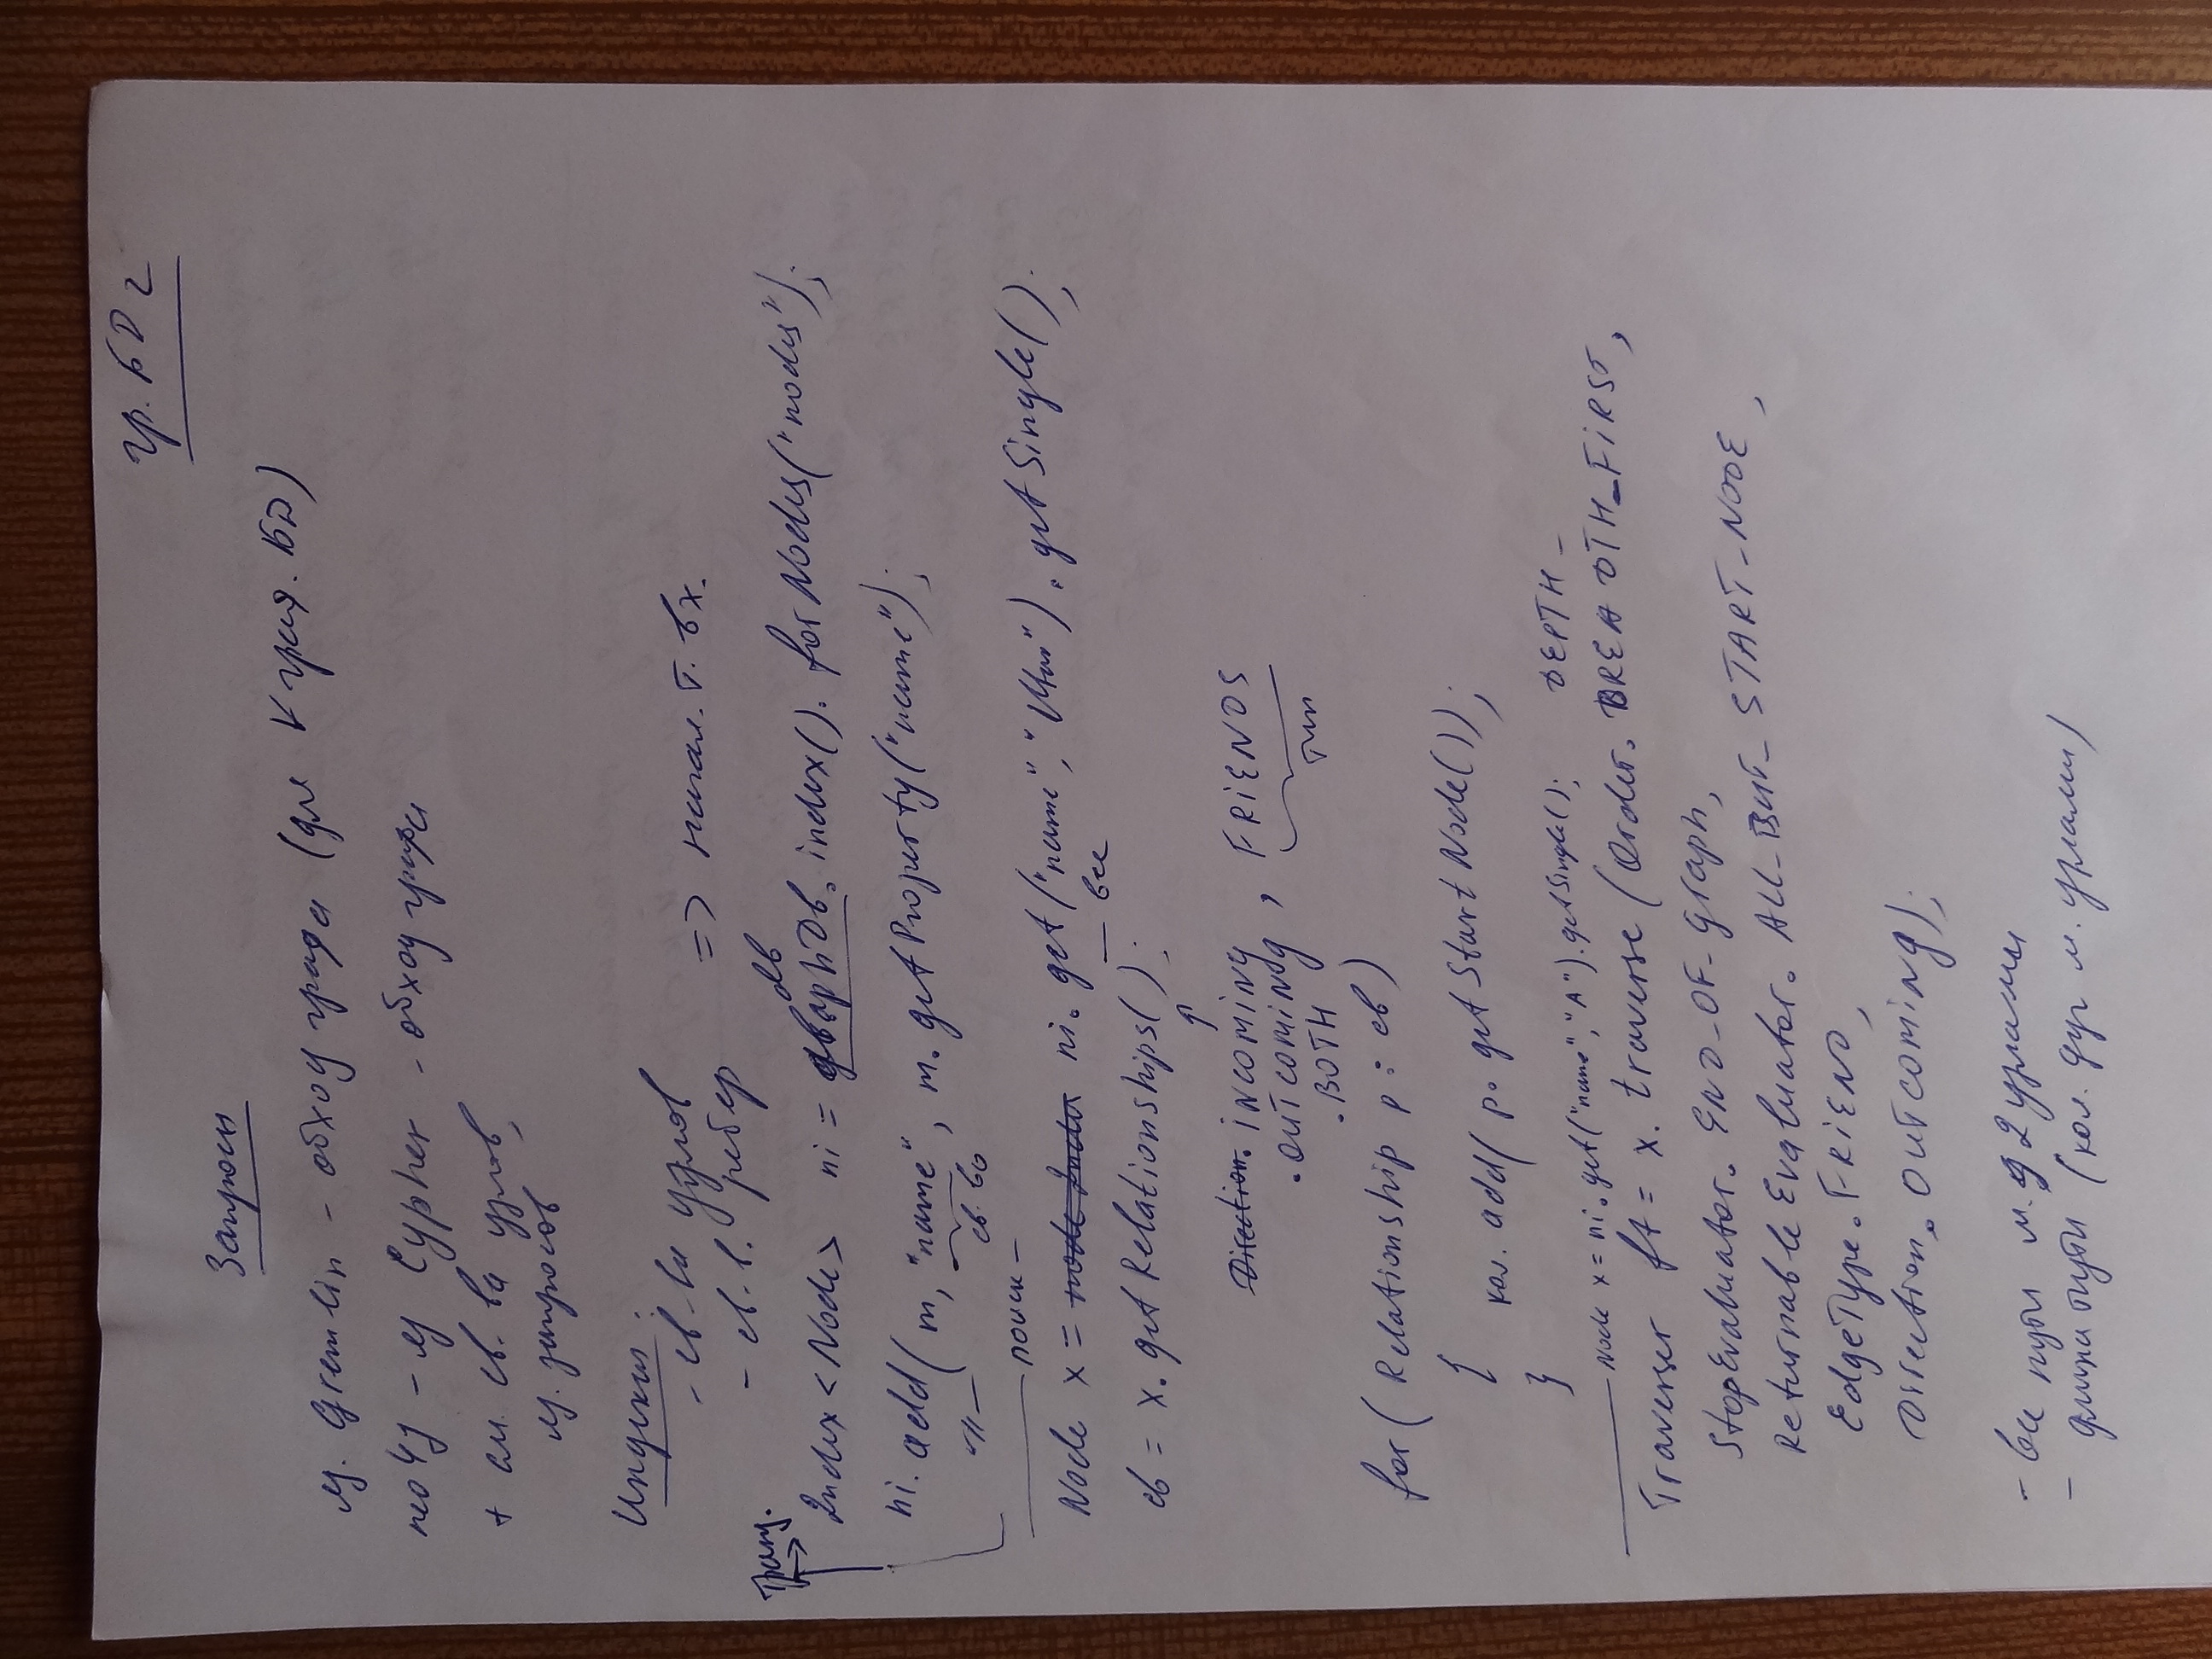 гр. БД 2
Запросы
яз. Gremlin - обход графа (для ∀ граф. БД)
neo4j - яз Cypher - обход графа
+ см. св-ва узлов,
яз. запросов
Индексы:
- св-ва узлов
- св-в. ребер => начал. т. вх.
Транз.
db
Index<Node> ni = graphDb. index(). forNodes("nodes");
ni. add( m, "name", m. getProperty("name");
-"- св-во
поиск -
Node x = node Index ni. get("name", ). getSingle();
- все
св = x. getRelationships();
Direction. INCOMING
.OUTCOMING , FRIENDS
.BOTH тип
for( Relationship p : св)
{ кол. add( p. getStartNode());
}
Node x = ni. get("name", "A"). getSingle(); DEPTH_
Traverser ft = x. traverse (Order. BREADTH_FIRST,
StopEvaluator. END_OF_Graph,
ReturnableEvaluator. ALL_BUT_START_NODE,
EdgeType. FRIEND,
Direction. OUTCOMING);
- все пути м.д 2 узлами
- длина пути (кол. дуг м. узлами)